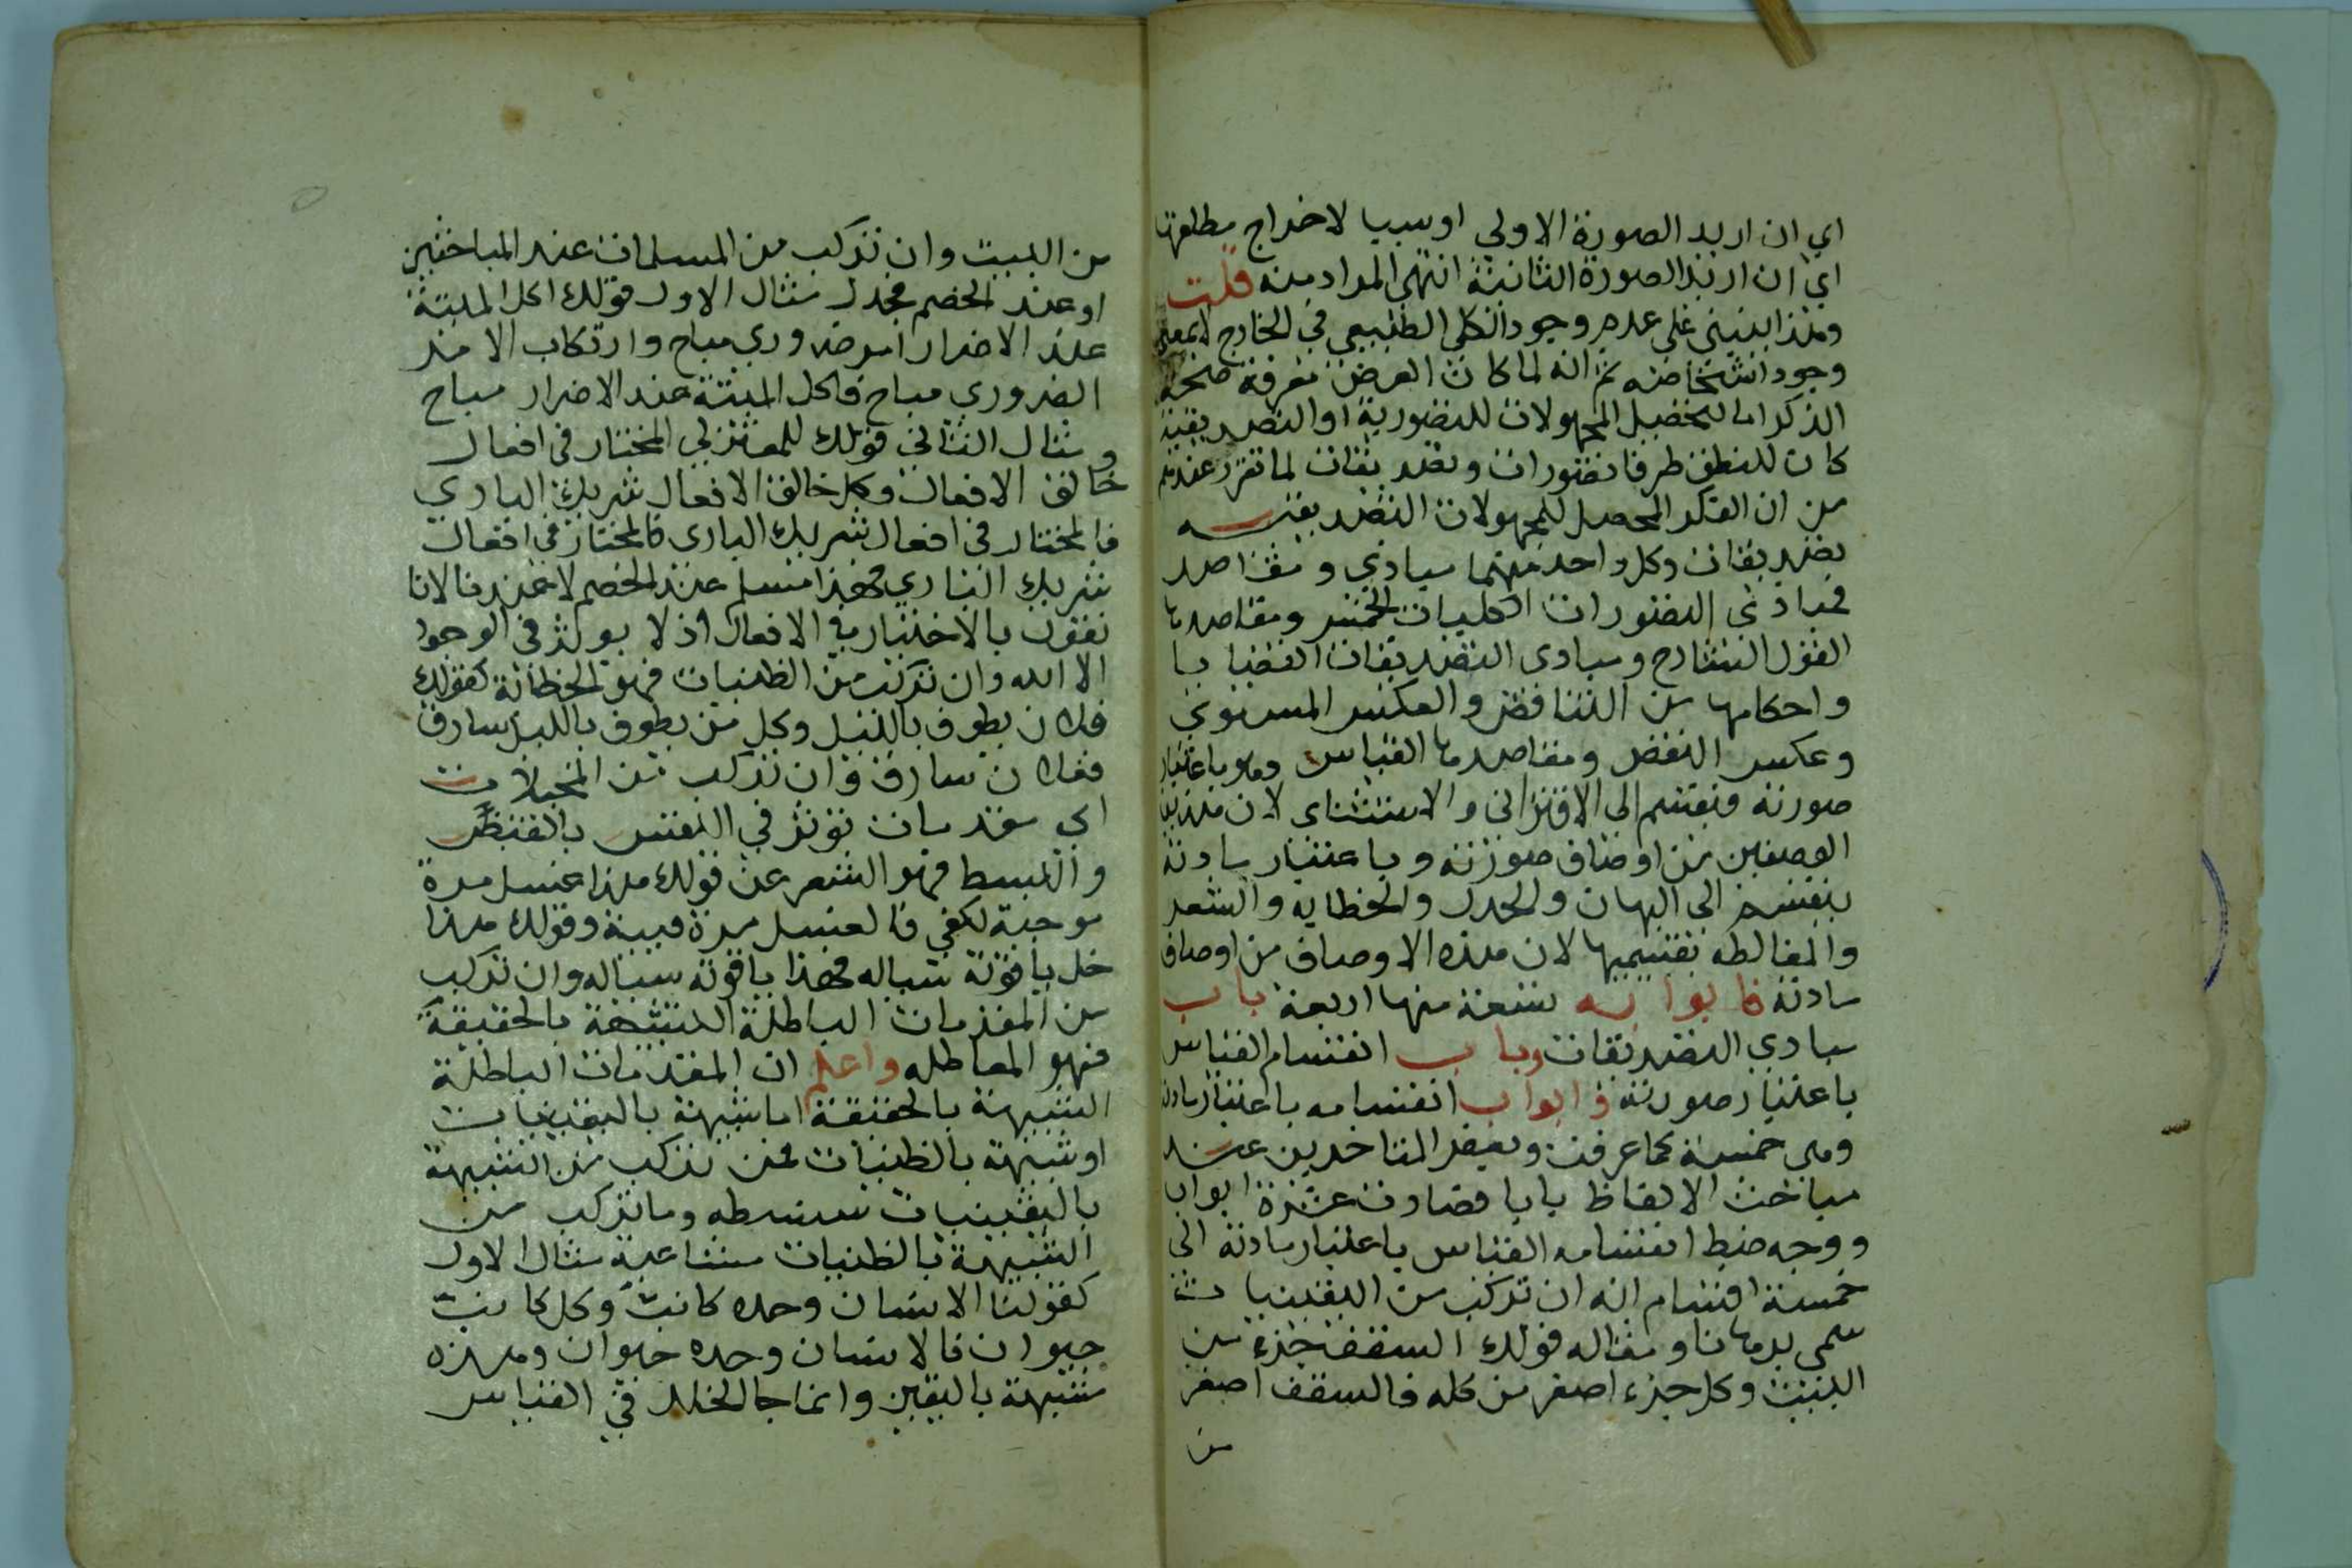 اي ان اريد الصورة الاولي اوسببا لاخراج مطلقها
اي ان اريد الصورة الثانية انتهى المراد منه قلت
وهذا ينبني على عدم وجود الكلي الطبيعي في الخارج لابمعنى
وجود اشخاصه ثم انه لما كان الغرض معرفة صحة
الذكر اما لتحصيل المجهولات التصورية او التصديقية
كان للمنطق طرفا تصورات وتصديقات لما تقرر عندهم
من ان الفكر المحصل للمجهولات التصديقيه
تصديقات وكل واحد منهما مبادي ومقاصد
فمبادئ التصورات الكليات الخمس ومقاصدها
القول الشارح ومبادى التصديقات القضايا
واحكامها من التناقض والعكس المستوي
وعكس النقض ومقاصدها القياس وهو باعتبار
صورته فيقسم الى الاقتراني والاستثناى لان هذين
الوصفين من اوصاف صورته وباعتبار مادته
ينقسم الى البهان والجدل والخطابه والشعر
والمغالطه بقسيميها لان هذه الاوصاف من اوصاف
مادته فابوابه تسعة منها اربعة باب
مبادي التصديقات وباب انقسام القياس
باعتبار صورته وابواب انقسامه باعتبار مادته
وهى خمسة كما عرفت وبعض المتاخرين عد
مباحث الالفاظ بابا فصارت عشرة ابواب
ووجه ضبط انقسامه القياس باعتبار مادته الى
خمسة اقسام انه ان تركب من اليقينيات
سمى برهانا ومثاله قولك السقف جزء من
البيت وكل جزء اصغر من كله فالسقف اصغر
من
من البيت وان تركب من المسلمات عند المباحثين
او عند الخصم فجدل مثال الاول قولك اكل الميتة
عند الاضرار امر ضروري مباح وارتكاب الامر
الضروري مباح فاكل الميتة عند الاضرار مباح
ومثال الثاني قولك للمعتزلي المختار في افعال
خالق الافعال وكل خالق الافعال شريك الباري
فالمختار في افعال شريك البارى فالمختار في افعال
شريك الباري فهذا مسلم عند الخصم لا عندنا لانا
نقول بالاختيار في الافعال اذ لا يوثر في الوجود
الا الله وان تركبت من الظنيات فهو الخطابة كقولك
فلان يطوف بالليل وكل من يطوف بالليل سارق
ففلان سارق وان تركب من المخيلات
اي مقدمات توثر في النفس بالقبض
والبسط فهو الشعر عن قولك هذا عسل مرة
موجبة لكفي فالعسل مرة قبيئة وقولك هذا
خل ياقوتة سياله فهذا ياقوته سياله وان تركب
من المقدمات الباطلة الشبيهة بالحقيقة
فهو المغاطله واعلم ان المقدمات الباطلة
الشبيهة بالحقيقة اما شبيهة باليقينيات
او شبيهة بالظنيات فمن تركب من الشبيهة
باليقينيات سفسطه وما تركب من
الشبيهة بالظنيات مشاغبة مثال الاول
كقولنا الانسان وحده كاتب وكل كاتب
حيوان فالانسان وحده حيوان وهذه
شبيهة باليقين وانما جا الخلل في القياس